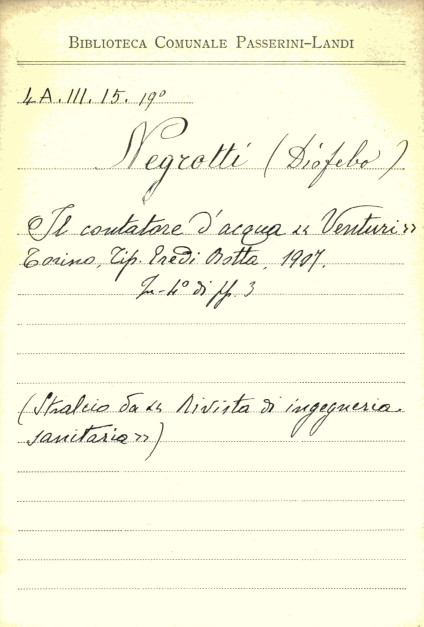 BIBLIOTECA COMUNALE PASSERINI-LANDI
4A. III. 15. 19º
Negrotti (Diofebo)
Il contatore d'acqua « Venturi »
Torino, Tip. Eredi Botta, 1907.
In-4º di pp. 3
(Stralcio da « Rivista di ingegneria
sanitaria »)